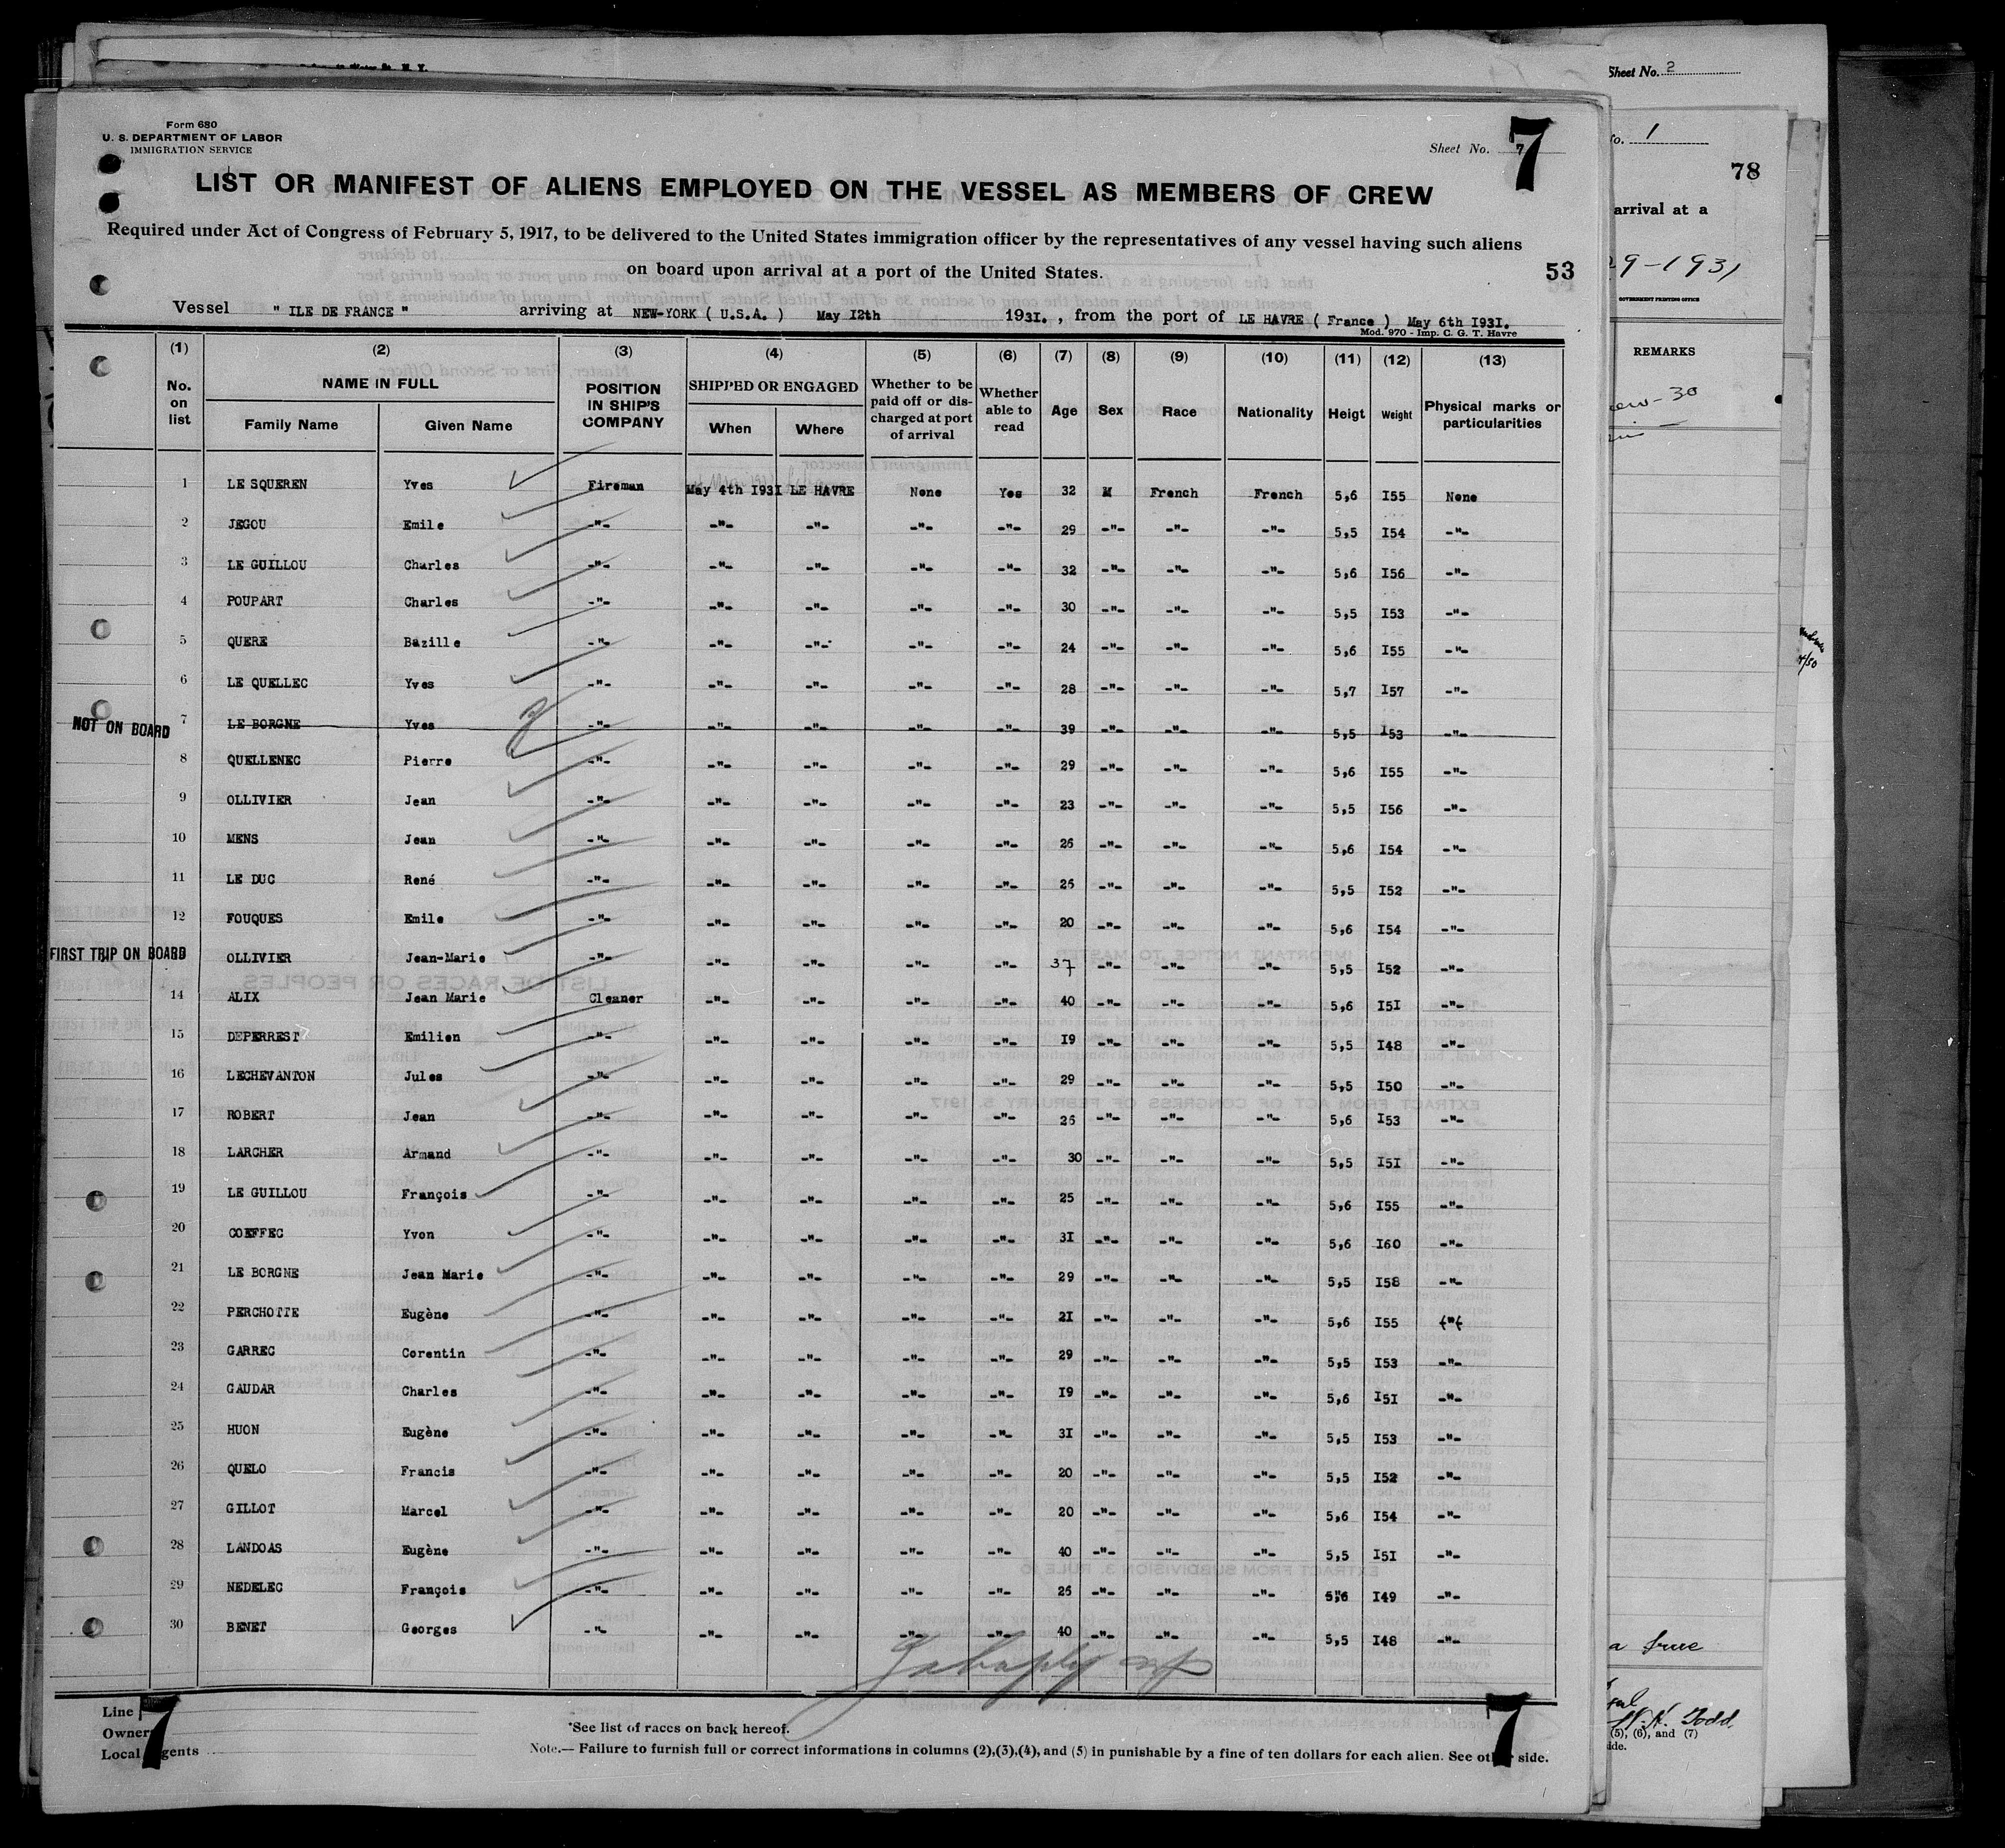 Sheet No. 2
Form 680
U. S. DEPARTMENT OF LABOR
IMMIGRATION SERVICE
Sheet No. 7
7
LIST OR MANIFEST OF ALIENS EMPLOYED ON THE VESSEL AS MEMBERS OF CREW
Required under Act of Congress of February 5, 1917, to be delivered to the United States immigration officer by the representatives of any vessel having such aliens
on board upon arrival at a port of the United States.
53
Vessel " ILE DE FRANCE " arriving at NEW-YORK ( U.S.A. ) May I2th 193I. , from the port of LE HAVRE ( France ) May 6th I93I.
Mod. 970 - Imp. C. G. T. Havre
(1) (2) (3) (4) (5) (6) (7) (8) (9) (10) (11) (12) (13)
No. on list NAME IN FULL Family Name Given Name POSITION IN SHIP'S COMPANY SHIPPED OR ENGAGED When Where Whether to be paid off or discharged at port of arrival Whether able to read Age Sex Race Nationality Heigt Weight Physical marks or particularities
1 LE SQUEREN Yves Fireman May 4th I93I LE HAVRE None Yes 32 M French French 5,6 I55 None
2 JEGOU Emile -"- -"- -"- -"- -"- 29 -"- -"- -"- 5,5 I54 -"-
3 LE GUILLOU Charles -"- -"- -"- -"- -"- 32 -"- -"- -"- 5,6 I56 -"-
4 POUPART Charles -"- -"- -"- -"- -"- 30 -"- -"- -"- 5,5 I53 -"-
5 QUERE Bazille -"- -"- -"- -"- -"- 24 -"- -"- -"- 5,6 I55 -"-
6 LE QUELLEC Yves -"- -"- -"- -"- -"- 28 -"- -"- -"- 5,7 I57 -"-
NOT ON BOARD 7 LE BORGNE Yves -"- -"- -"- -"- -"- 39 -"- -"- -"- 5,5 I53 -"-
8 QUELLENEC Pierre -"- -"- -"- -"- -"- 29 -"- -"- -"- 5,6 I55 -"-
9 OLLIVIER Jean -"- -"- -"- -"- -"- 23 -"- -"- -"- 5,5 I56 -"-
10 MENS Jean -"- -"- -"- -"- -"- 26 -"- -"- -"- 5,6 I54 -"-
11 LE DUC René -"- -"- -"- -"- -"- 26 -"- -"- -"- 5,5 I52 -"-
12 FOUQUES Emile -"- -"- -"- -"- -"- 20 -"- -"- -"- 5,6 I54 -"-
FIRST TRIP ON BOARD OLLIVIER Jean-Marie -"- -"- -"- -"- -"- 37 -"- -"- -"- 5,5 I52 -"-
14 ALIX Jean Marie Cleaner -"- -"- -"- -"- 40 -"- -"- -"- 5,6 I5I -"-
15 DEPERREST Emilien -"- -"- -"- -"- -"- I9 -"- -"- -"- 5,5 I48 -"-
16 LECHEVANTON Jules -"- -"- -"- -"- -"- 29 -"- -"- -"- 5,5 I50 -"-
17 ROBERT Jean -"- -"- -"- -"- -"- 26 -"- -"- -"- 5,6 I53 -"-
18 LARCHER Armand -"- -"- -"- -"- -"- 30 -"- -"- -"- 5,5 I5I -"-
19 LE GUILLOU François -"- -"- -"- -"- -"- 25 -"- -"- -"- 5,6 I55 -"-
20 COEFFEC Yvon -"- -"- -"- -"- -"- 3I -"- -"- -"- 5,6 I60 -"-
21 LE BORGNE Jean Marie -"- -"- -"- -"- -"- 29 -"- -"- -"- 5,5 I58 -"-
22 PERCHOTTE Eugène -"- -"- -"- -"- -"- 2I -"- -"- -"- 5,6 I55 -"-
23 GARREC Corentin -"- -"- -"- -"- -"- 29 -"- -"- -"- 5,5 I53 -"-
24 GAUDAR Charles -"- -"- -"- -"- -"- I9 -"- -"- -"- 5,6 I5I -"-
25 HUON Eugène -"- -"- -"- -"- -"- 3I -"- -"- -"- 5,5 I53 -"-
26 QUELO Francis -"- -"- -"- -"- -"- 20 -"- -"- -"- 5,5 I52 -"-
27 GILLOT Marcel -"- -"- -"- -"- -"- 20 -"- -"- -"- 5,6 I54 -"-
28 LANDOAS Eugène -"- -"- -"- -"- -"- 40 -"- -"- -"- 5,5 I5I -"-
29 NEDELEC François -"- -"- -"- -"- -"- 26 -"- -"- -"- 5,6 I49 -"-
30 BENET Georges -"- -"- -"- -"- -"- 40 -"- -"- -"- 5,5 I48 -"-
Line
Owners
Local Agents
7
7
*See list of races on back hereof.
Note.— Failure to furnish full or correct informations in columns (2),(3),(4), and (5) in punishable by a fine of ten dollars for each alien. See other side.
1
78
arrival at a
29-1931
GOVERNMENT PRINTING OFFICE
REMARKS
30
a true
W. H. Todd.
(5), (6), and (7)
side.